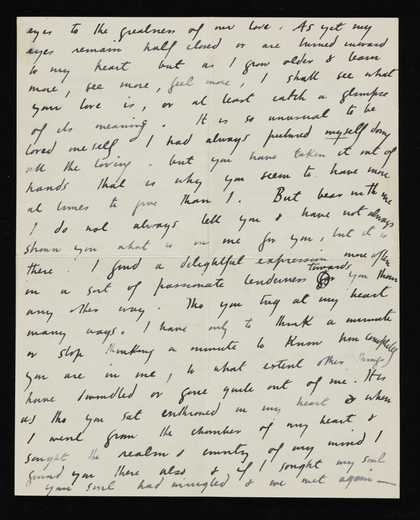 eyes to the greatness of our love. As yet my
eyes remain half closed or are turned inward
to my heart but as I grow older & learn
more, see more, feel more, I shall see what
your love is, or at least catch a glimpse
of its meaning. It is so unusual to be
loved meself - I had always pictured myself doing
all the loving. but you have taken it out of
hands that is why you seem to have more
at times to give than I. But bear with me
I do not always tell you & have not always
shown you what is in me for you, but it is
there. I find a delightful expression more often
in a sort of passionate tenderness towards you than
any other way. Tho you tug at my heart
many ways. I have only to think a minute
or stop thinking a minute to know how completely
you are in me, to what extent other things
have dwindled or gone quite out of me. It is
as tho you sat enthroned in my heart & when
I went from the chamber of my heart &
sought the realm & country of my mind I
found you there also & if I sought my soul
your soul had mingled & we met again —